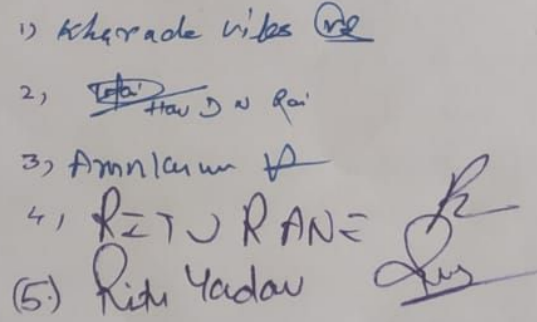 1) Kharade vikas
2, Hav D N Rai
3)
4, RITU RANE
(5.) Ritu Yadav